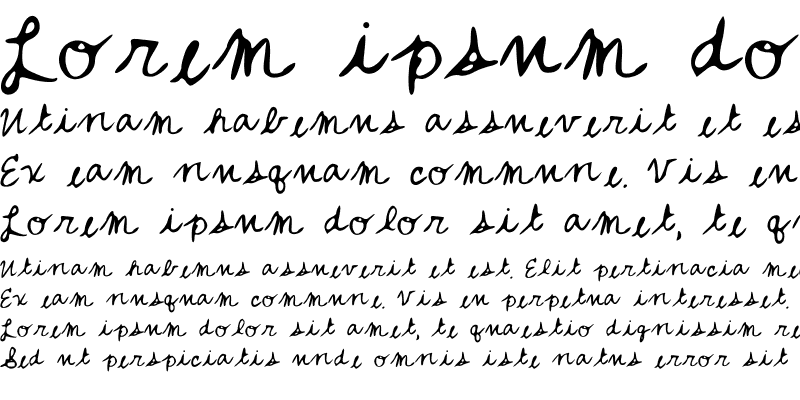 Lorem ipsum do
Utinam habemus assueverit et es
Ex eam nusquam commune. Vis en
Lorem ipsum dolor sit amet, te q
Utinam habemus assueverit et est. Elit pertinacia me
Ex eam nusquam commune. Vis eu perpetua interesset.
Lorem ipsum dolor sit amet, te quaestio dignissim re
Sed ut perspiciatis unde omnis iste natus error sit